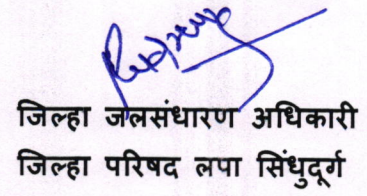 जिल्हा जलसंधारण अधिकारी
जिल्हा परिषद लपा सिंधुदूर्ग